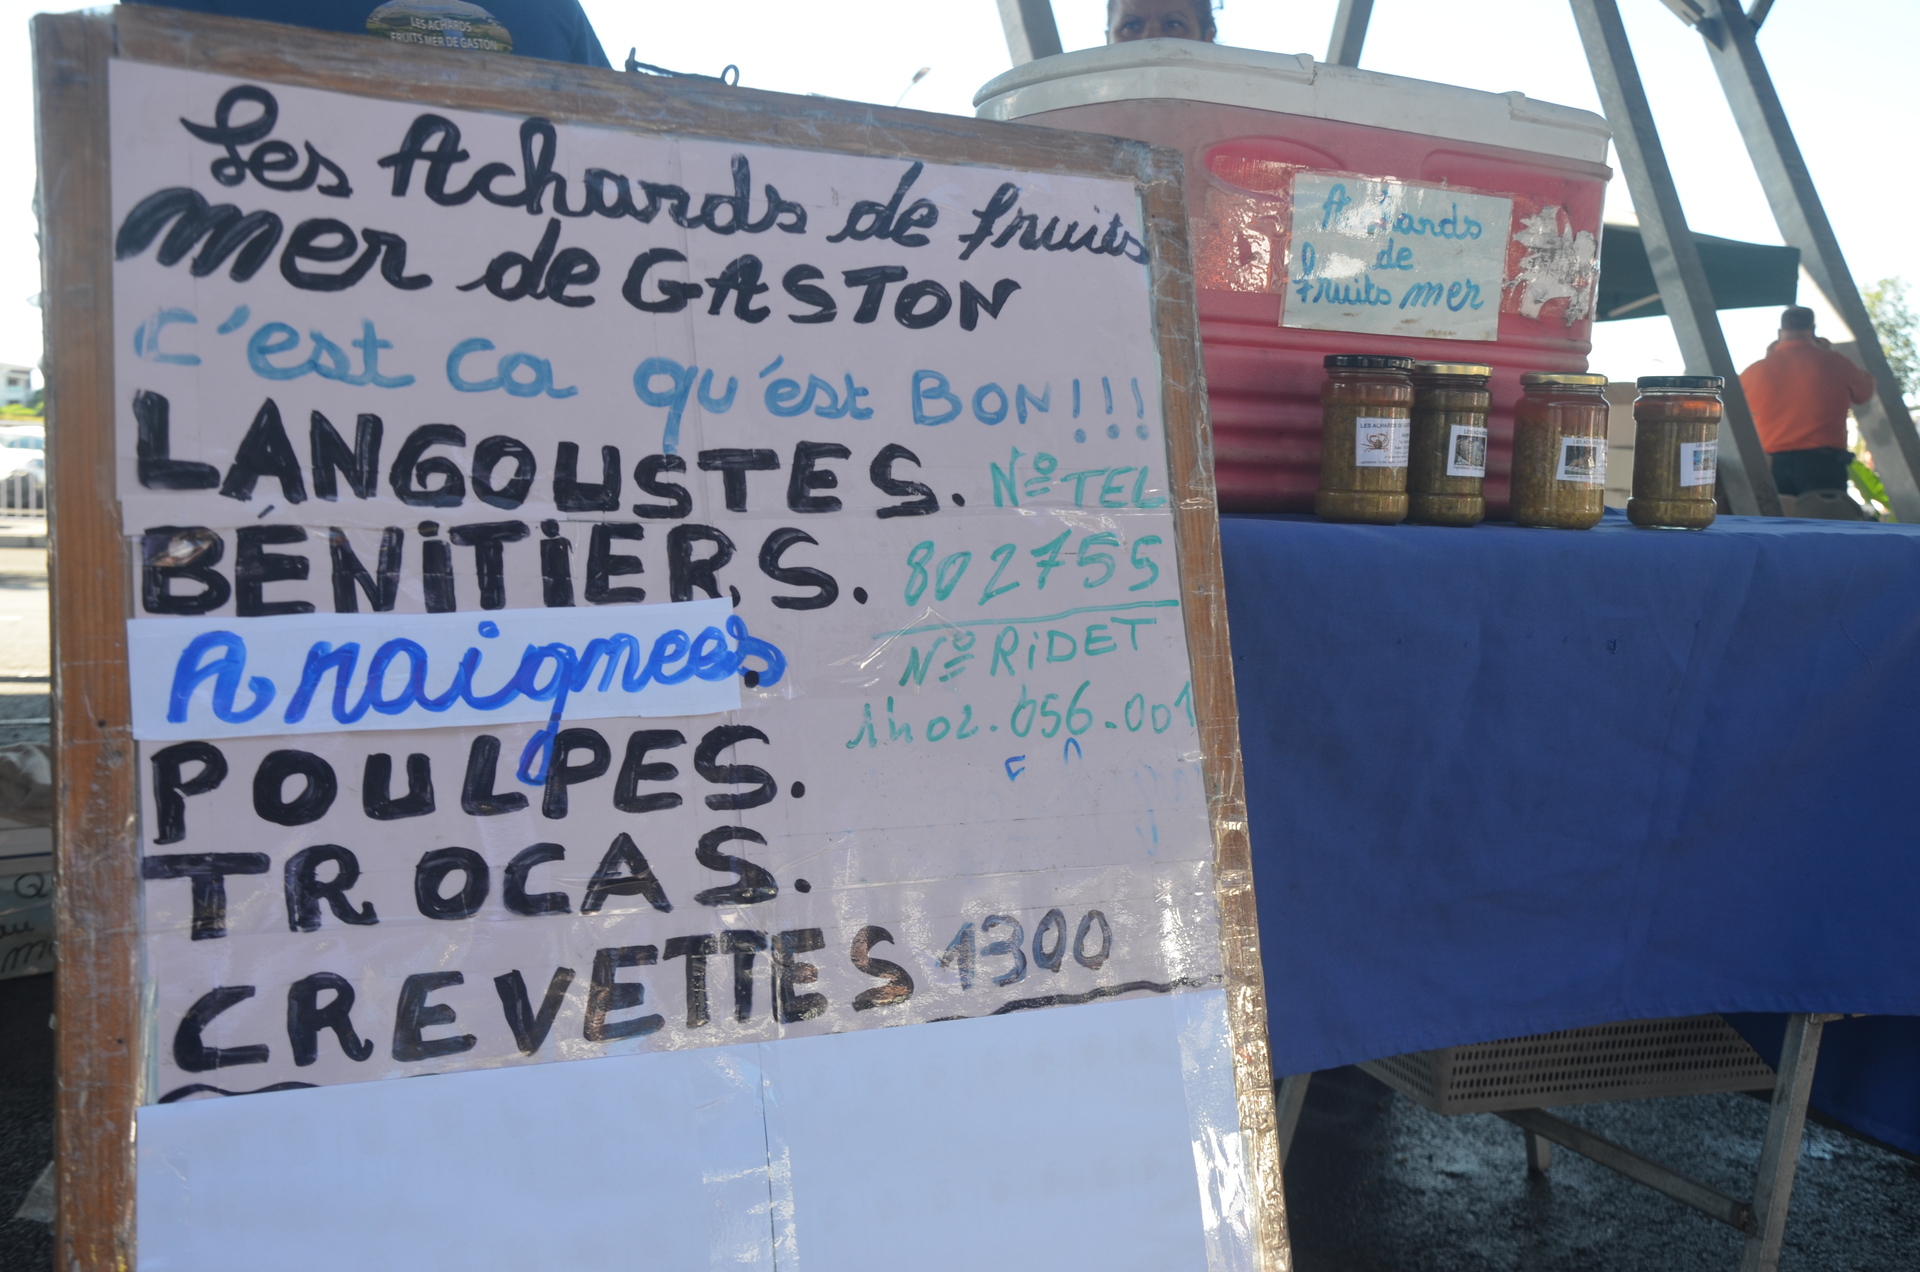 LES ACHARDS
FRUITS MER DE GASTON
Les Achards de fruits
mer de GASTON
c'est ca qu'est BON!!!
LANGOUSTES.
N° TEL
BÉNITIERS.
802755
Araignees.
N° RiDET
1h02.056.001
POULPES.
TROCAS.
CREVETTES 1300
Achards
de
fruits mer
LES ACHARDS DE